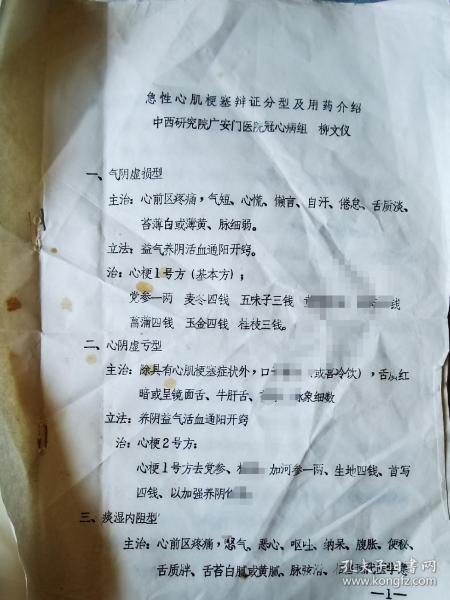 急性心肌梗塞辩证分型及用药介绍
中西研究院广安门医院冠心病组 柳文仪
一、气阴虚损型
主治:心前区疼痛,气短、心慌、懒言、自汗、倦怠、舌质淡、
苔薄白或薄黄、脉细弱。
立法:益气养阴活血通阳开窍。
治:心梗1号方(基本方):
党参一两 麦冬四钱 五味子三钱 钱
菖蒲四钱 玉金四钱 桂枝三钱。
二、心阴虚亏型
主治:除具有心肌梗塞症状外,口(或喜冷饮),舌红
暗或呈镜面舌、牛肝舌、脉象细数
立法:养阴益气活血通阳开窍
治:心梗2号方:
心梗1号方去党参、加河参一两、生地四钱、首写
四钱、以加强养阴
三、痰湿内阻型
主治:心前区疼痛,憋气、恶心、呕吐、纳呆、腹胀、便秘、
舌质胖、舌苔白腻或黄腻、脉
—1—
孔夫子旧书网
kongfz.com